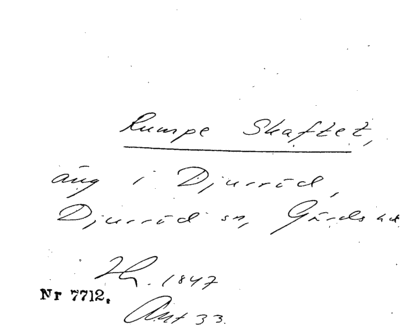 Rumpe Skaftet,
äng i Djurröd,
Djurröd sn, Gärds hd
1847
Nr 7712.
Ant 33.